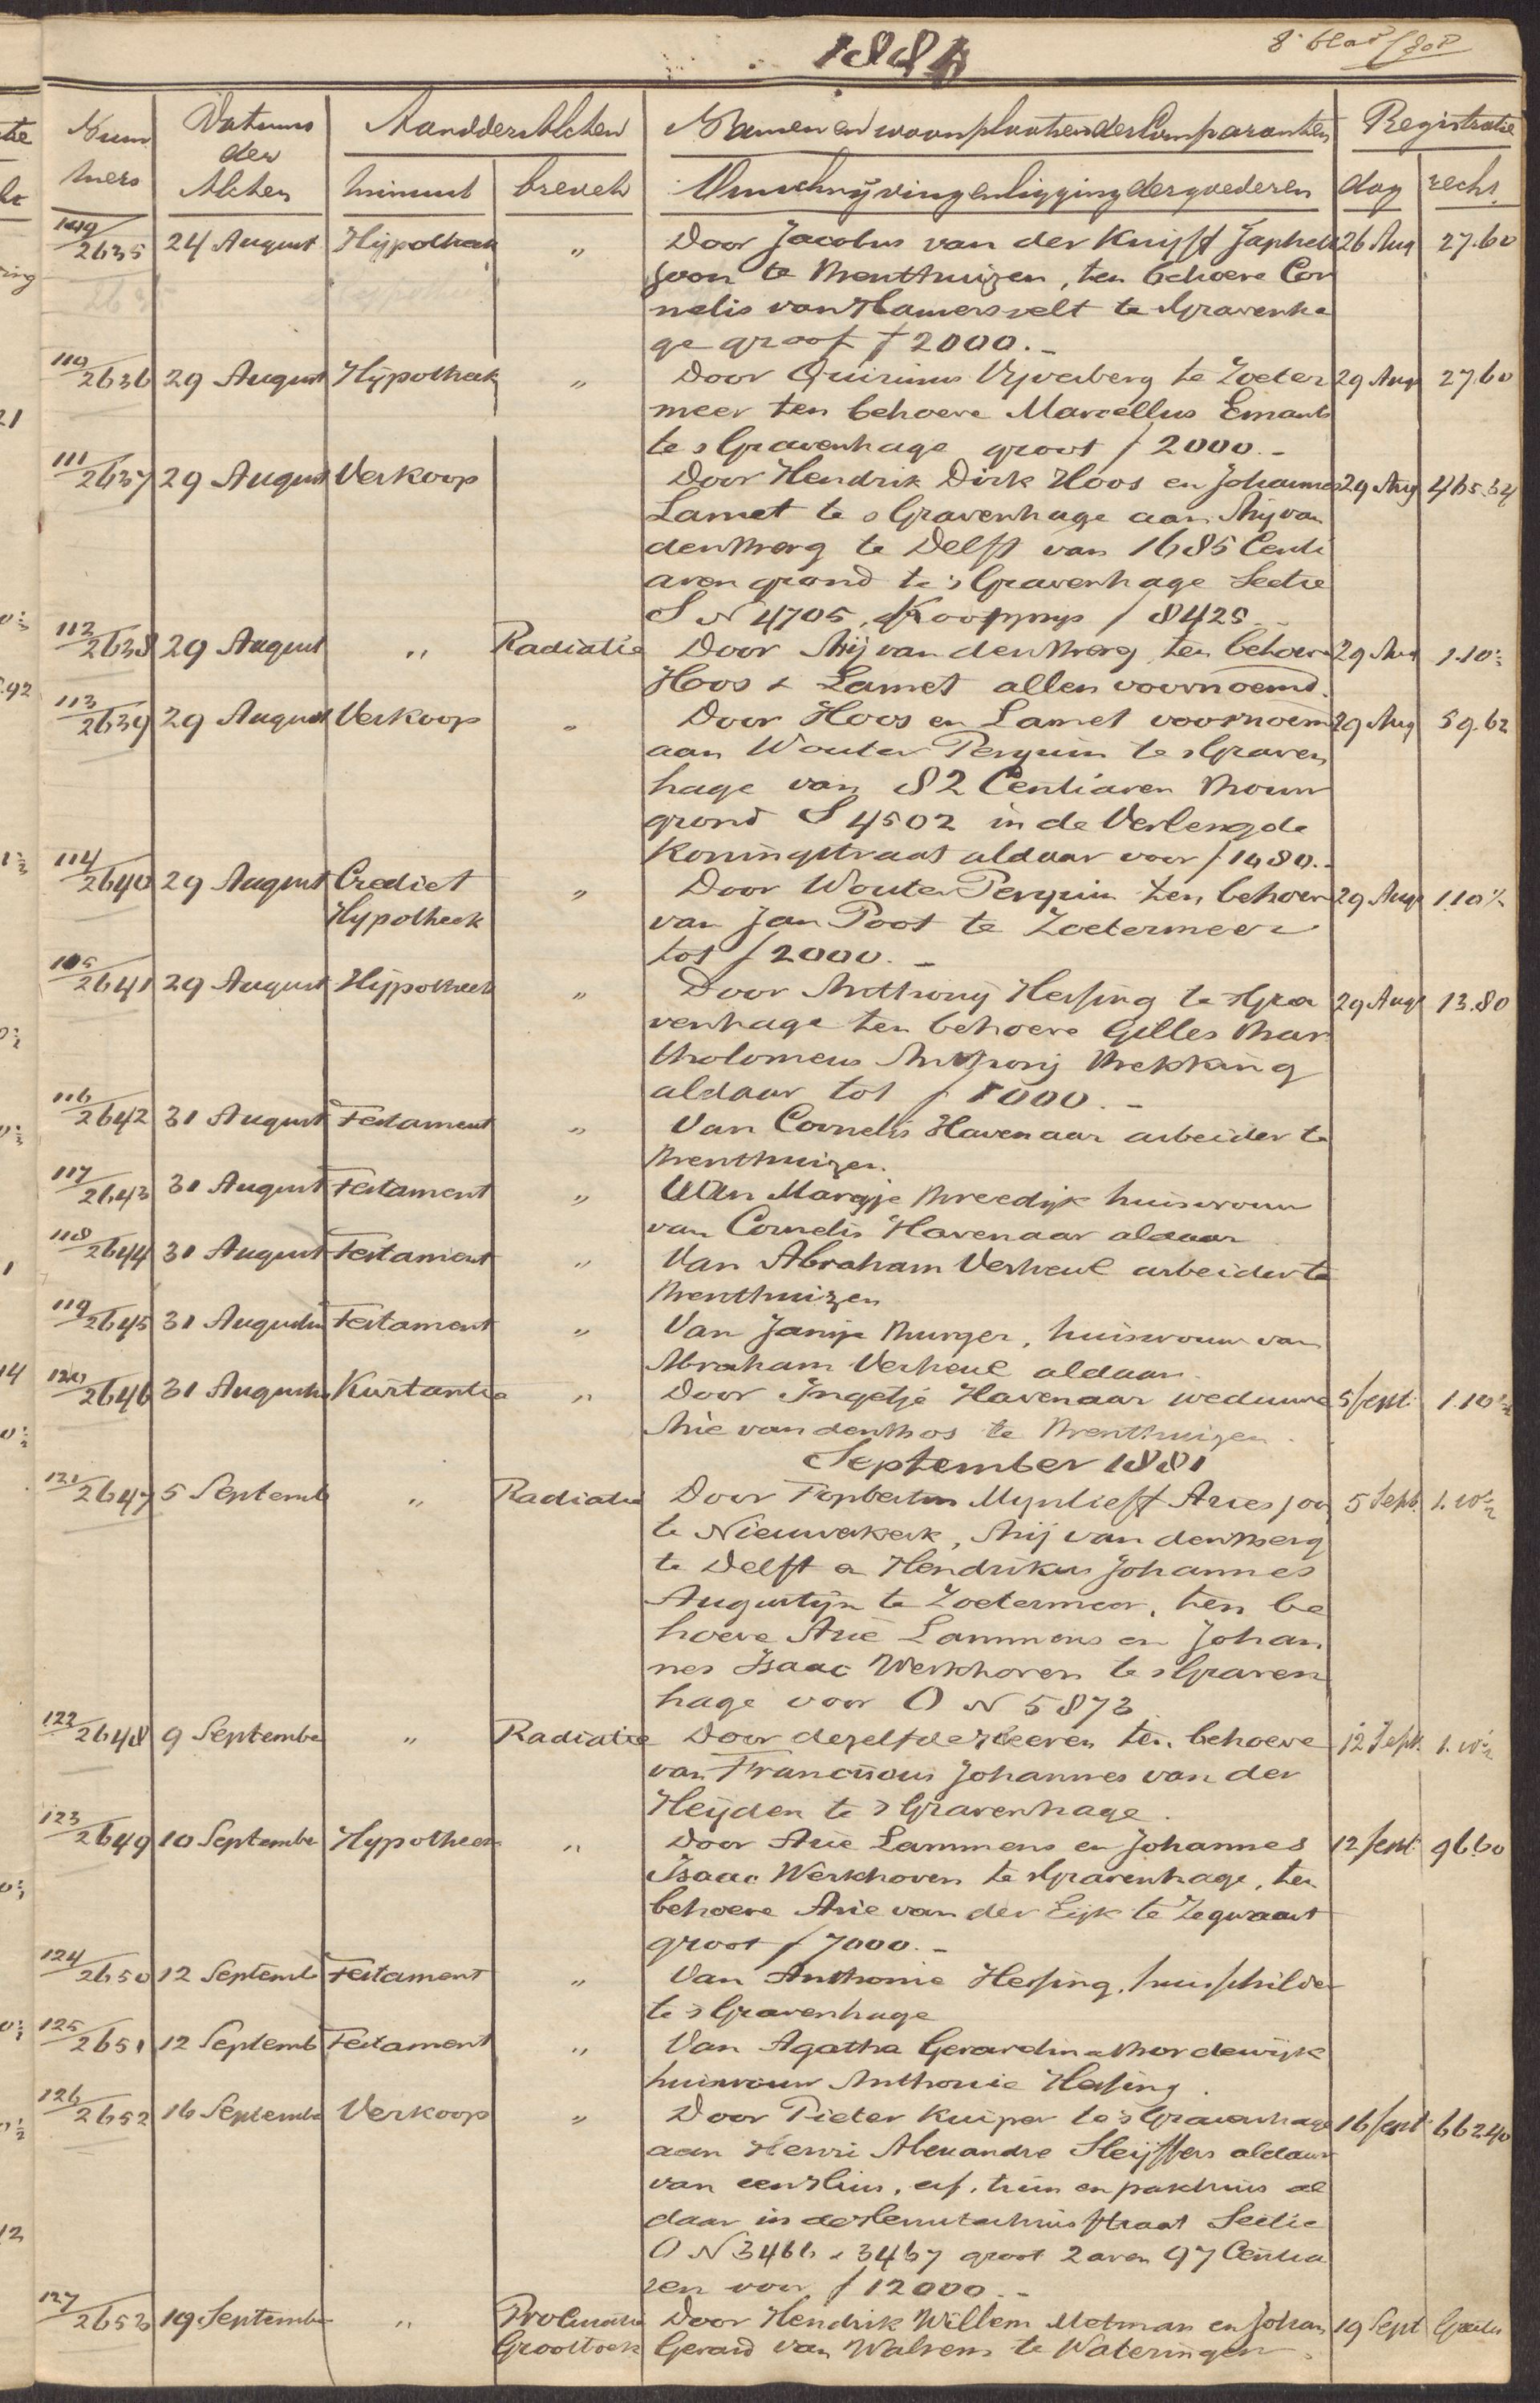 1881
8e blad
Num Datums Aard der Akten Namen en woonplaatsen der Comparanten Registratie
mers der Akten minuut brevet Omschrijving en ligging der goederen dag recht
109/2635 24 August Hypotheek " Door Jacobus van der Knijff Japhets 26 Aug 27.60
zoon te Benthuizen, ten behoeve Cor
nelis van Hamersvelt te sGravenha
ge groot f 2000.-
110/2636 29 August Hypotheek " Door Quirinus Vijverberg te Zoeter 29 Aug 27.60
meer ten behoeve Marcellus Emants
te sGravenhage groot f 2000.-
111/2637 29 August Verkoop Door Hendrik Dirk Hoos en Johannes 29 Aug 465.54
Lamet te sGravenhage aan Arij van
den Berg te Delft van 1685 Centi
aren grond te 'sGravenhage Sectie
S N 4705, Koopprijs f 8425.-
112/2638 29 August " Radiatie Door Arij van den Berg ten behoeve 29 Aug 1.10½
Hoos & Lamet allen voornoemd.
113/2639 29 August Verkoop " Door Hoos en Lamet voornoemd 29 Aug 59.62
aan Wouter Perquin te sGraven
hage van 82 Centiaren Bouw
grond S 4502 in de Verlengde
Koningstraat aldaar voor f 1480.-
114/2640 29 August Crediet " Door Wouter Perquin ten behoeve 29 Aug 1.10½
Hypotheek van Jan Poot te Zoetermeer
tot f 2000.-
115/2641 29 August Hypotheek " Door Anthonij Hessing te sGra 29 Aug 13.80
venhage ten behoeve Gilles Bar
tholomeus Anthonij Brekking
aldaar tot f 1000.-
116/2642 31 August Testament " Van Cornelis Havenaar arbeider te
Benthuizen
117/2643 31 August Testament " Van Marijje Breedijk huisvrouw
van Cornelis Havenaar aldaar
118/2644 31 August Testament " Van Abraham Verheul arbeider te
Benthuizen
119/2645 31 Augustus Testament " Van Jansje Burger, huisvrouw van
Abraham Verheul aldaar.
120/2646 31 Augustus Kwitantie " Door Ingetje Havenaar weduwe 5 Sept. 1.10½
Arie van den Bos te Benthuizen.
September 1881
121/2647 5 Septemb " Radiatie Door Fopbertus Mynlieff Aries zoon 5 Sept. 1.10½
te Nieuwerkerk, Arij van den Berg
te Delft en Hendrikus Johannes
Augustijn te Zoetermeer, ten be
hoeve Arie Lammens en Johan
nes Isaac Werkhoven te sGraven
hage voor O N 5873
122/2648 9 September " Radiatie Door dezelfde heeren ten behoeve 12 Sept. 1.10½
van Franciscus Johannes van der
Heijden te sGravenhage.
123/2649 10 September Hypotheek " Door Arie Lammens en Johannes 12 Sept. 96.60
Isaac Werkhoven te sGravenhage, ten
behoeve Arie van der Eijk te Zegwaart
groot f 7000.-
124/2650 12 Septemb Testament " Van Anthonie Hessing, huisschilder
te sGravenhage
125/2651 12 Septemb Testament " Van Agatha Gerardina Bordewijk
huisvrouw Anthonie Hessing.
126/2652 16 September Verkoop " Door Pieter Kuiper te 'sGravenhage 16 Sept. 662.40
aan Henri Alexandre Sleijffers aldaar
van een Huis, erf, tuin en pakhuis al
daar in de straat Sectie
O N 3466 & 3467 groot 2 aren 97 Centia
ren voor f 12000.-
127/2653 19 September " Procuratie Door Hendrik Willem Metman en Johan 19 Sept Gratis
Grootboek Gerard van Walrem te Wateringen.